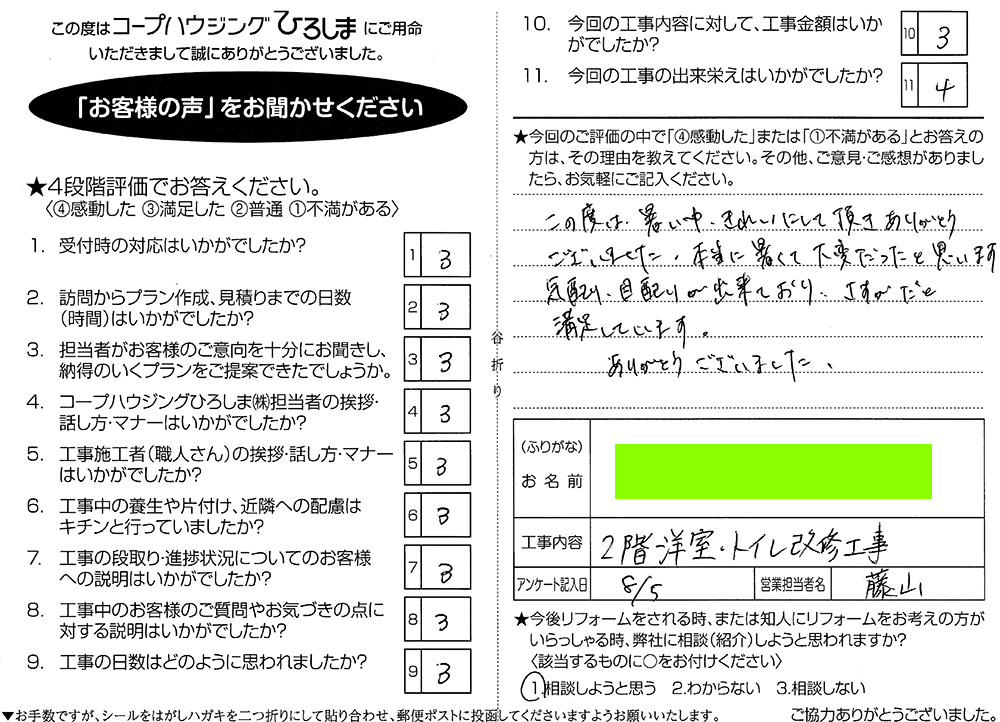 この度はコープハウジングひろしまにご用命
いただきまして誠にありがとうございました。
「お客様の声」をお聞かせください
★4段階評価でお答えください。
〈④感動した ③満足した ②普通 ①不満がある〉
1. 受付時の対応はいかがでしたか?
1 3
2. 訪問からプラン作成、見積りまでの日数
(時間)はいかがでしたか?
2 3
3. 担当者がお客様のご意向を十分にお聞きし、
納得のいくプランをご提案できたでしょうか。
3 3
4. コープハウジングひろしま㈱担当者の挨拶・
話し方・マナーはいかがでしたか?
4 3
5. 工事施工者(職人さん)の挨拶・話し方・マナー
はいかがでしたか?
5 3
6. 工事中の養生や片付け、近隣への配慮は
キチンと行っていましたか?
6 3
7. 工事の段取り・進捗状況についてのお客様
への説明はいかがでしたか?
7 3
8. 工事中のお客様のご質問やお気づきの点に
対する説明はいかがでしたか?
8 3
9. 工事の日数はどのように思われましたか?
9 3
▼お手数ですが、シールをはがしハガキを二つ折りにして貼り合わせ、郵便ポストに投函してくださいますようお願いいたします。
谷折り
10. 今回の工事内容に対して、工事金額はいか
がでしたか?
10 3
11. 今回の工事の出来栄えはいかがでしたか?
11 4
★今回のご評価の中で「④感動した」または「①不満がある」とお答えの
方は、その理由を教えてください。その他、ご意見・ご感想がありまし
たら、お気軽にご記入ください。
この度は暑い中、きれいにして頂きありがとう
ございました。本当に暑くて大変だったと思います
気配り、目配りが出来ており、さすがだと
満足しています。
ありがとうございました。
(ふりがな)
お名前
工事内容 2階洋室・トイレ改修工事
アンケート記入日 8/5 営業担当者名 藤山
★今後リフォームをされる時、または知人にリフォームをお考えの方が
いらっしゃる時、弊社に相談(紹介)しようと思われますか?
〈該当するものに○をお付けください〉
1.相談しようと思う 2.わからない 3.相談しない
ご協力ありがとうございました。